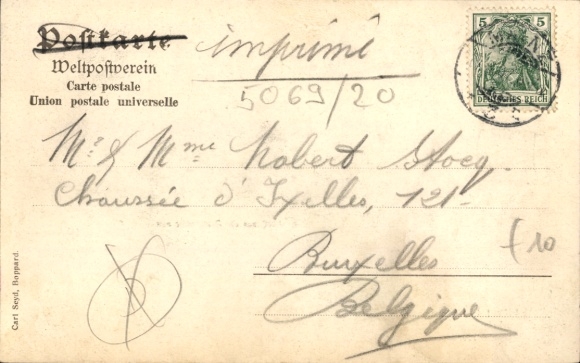 Postkarte
imprimé
Weltpostverein
Carte postale
Union postale universelle
5069/20
5 5
DEUTSCHES REICH
Mr & Mme Nobert Stocq.
Chaussée d'Ixelles, 121-
Bruxelles
Belgique
f10
Carl Seyd, Boppard.